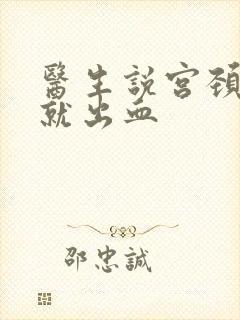 醫生說宮頸
就出血
邵忠誠